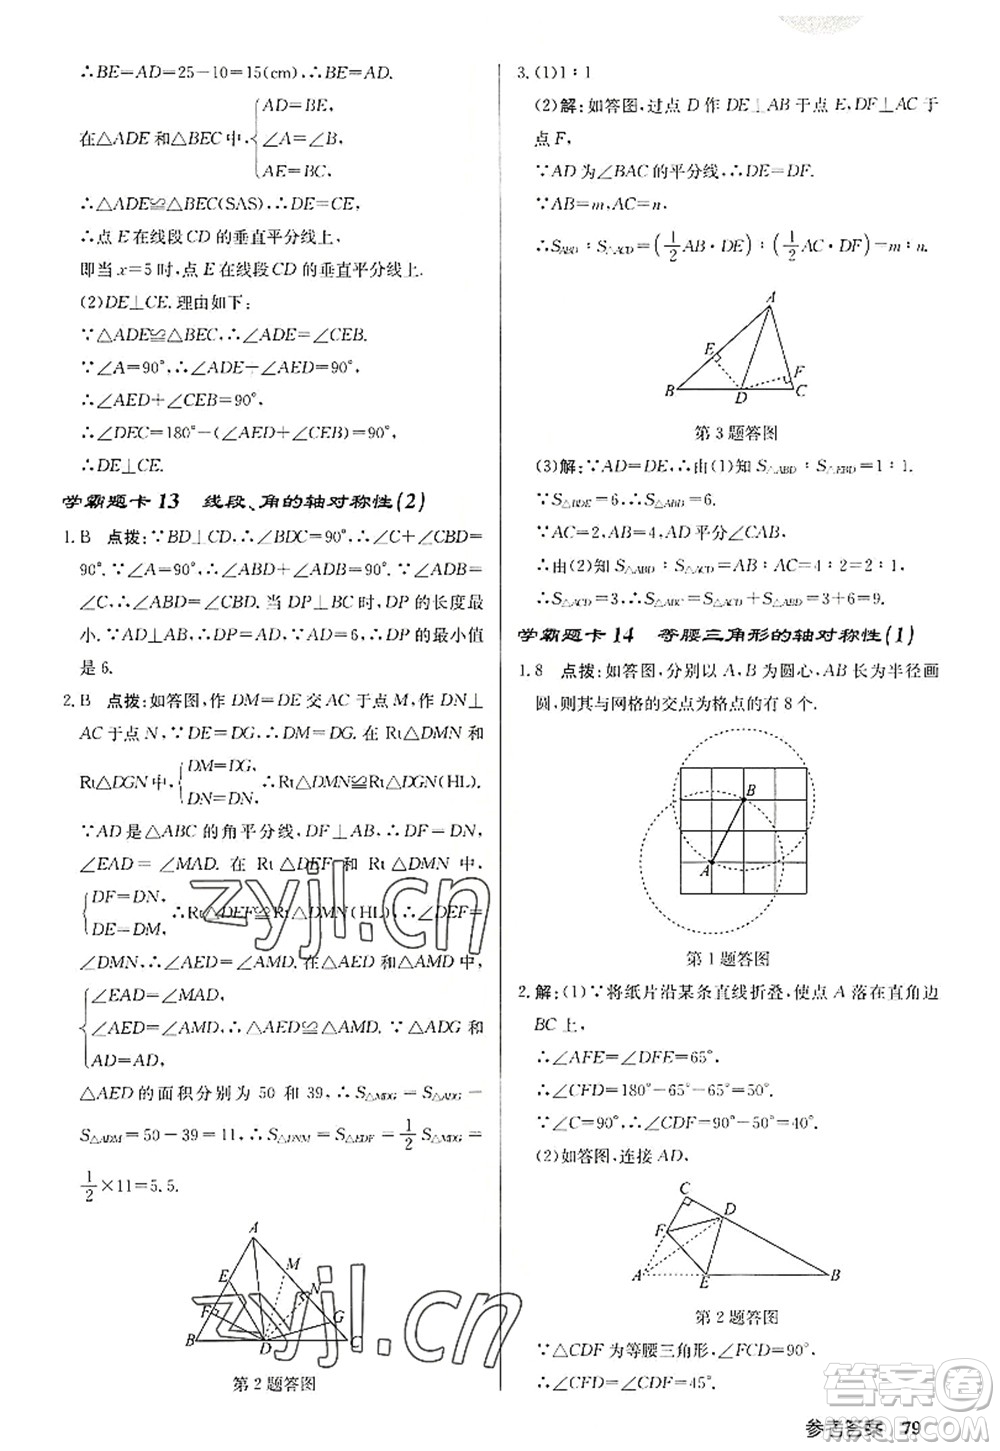 ∴BE=AD=25-10=15(cm),∴BE=AD.
在△ADE和△BEC中,{AD=BE,
∠A=∠B,
AE=BC,
∴△ADE≌△BEC(SAS),∴DE=CE,
∴点E在线段CD的垂直平分线上,
即当x=5时,点E在线段CD的垂直平分线上.
(2)DE⊥CE.理由如下:
∵△ADE≌△BEC,∴∠ADE=∠CEB.
∵∠A=90°,∴∠ADE+∠AED=90°,
∴∠AED+∠CEB=90°,
∴∠DEC=180°-(∠AED+∠CEB)=90°,
∴DE⊥CE.
学霸题卡13 线段、角的轴对称性(2)
1.B 点拨:∵BD⊥CD,∴∠BDC=90°,∴∠C+∠CBD=
90°.∵∠A=90°,∴∠ABD+∠ADB=90°.∵∠ADB=
∠C,∴∠ABD=∠CBD.当DP⊥BC时,DP的长度最
小.∵AD⊥AB,∴DP=AD,∵AD=6,∴DP的最小值
是6.
2.B 点拨:如答图,作DM=DE交AC于点M,作DN⊥
AC于点N,∵DE=DG,∴DM=DG.在Rt△DMN和
Rt△DGN中,{DM=DG,
DN=DN,
∴Rt△DMN≌Rt△DGN(HL).
∵AD是△ABC的角平分线,DF⊥AB,∴DF=DN,
∠EAD=∠MAD.在Rt△DEF和Rt△DMN中,
{DF=DN,
DE=DM,
∴Rt△DEF≌Rt△DMN(HL),∴∠DEF=
∠DMN,∴∠AED=∠AMD.在△AED和△AMD中,
{∠EAD=∠MAD,
∠AED=∠AMD,∴△AED≌△AMD.∵△ADG和
AD=AD,
△AED的面积分别为50和39,∴S△MDG=S△ADG-
S△ADM=50-39=11,∴S△DNM=S△EDF=1/2S△MDG=
1/2×11=5.5.
A
E
M
F
N
G
B
D
C
第2题答图
3.(1)1∶1
(2)解:如答图,过点D作DE⊥AB于点E,DF⊥AC于
点F,
∵AD为∠BAC的平分线,∴DE=DF.
∵AB=m,AC=n,
∴S△ABD∶S△ACD=(1/2AB·DE)∶(1/2AC·DF)=m∶n.
A
E
F
B
D
C
第3题答图
(3)解:∵AD=DE,∴由(1)知S△ABD∶S△EBD=1∶1.
∵S△BDE=6,∴S△ABD=6.
∵AC=2,AB=4,AD平分∠CAB,
∴由(2)知S△ABD∶S△ACD=AB∶AC=4∶2=2∶1,
∴S△ACD=3,∴S△ABC=S△ABD+S△ACD=3+6=9.
学霸题卡14 等腰三角形的轴对称性(1)
1.8 点拨:如答图,分别以A,B为圆心,AB长为半径画
圆,则其与网格的交点为格点的有8个.
B
A
第1题答图
2.解:(1)∵将纸片沿某条直线折叠,使点A落在直角边
BC上,
∴∠AFE=∠DFE=65°,
∴∠CFD=180°-65°-65°=50°.
∵∠C=90°,∴∠CDF=90°-50°=40°.
(2)如答图,连接AD,
C
D
F
A
E
B
第2题答图
∵△CDF为等腰三角形,∠FCD=90°,
∴∠CFD=45°.
参考答案 79
zyjl.cn
zyjl.cn
答案圈